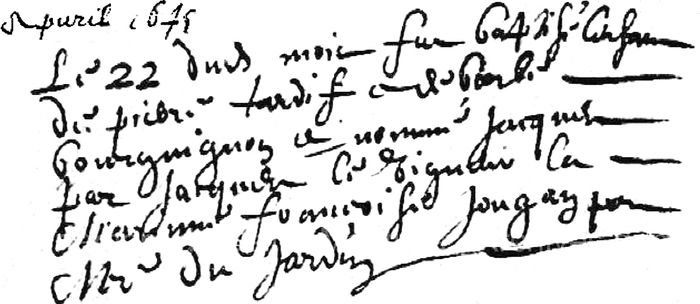 Apuril 1675
Le 22 dud mois fut baptisé lenfan
de pierre tardif et de barbe
bourguignon et nommé Jacques
par Jacques le Seigneur La
Maraine francoise Jougan par
Mre du Jardin